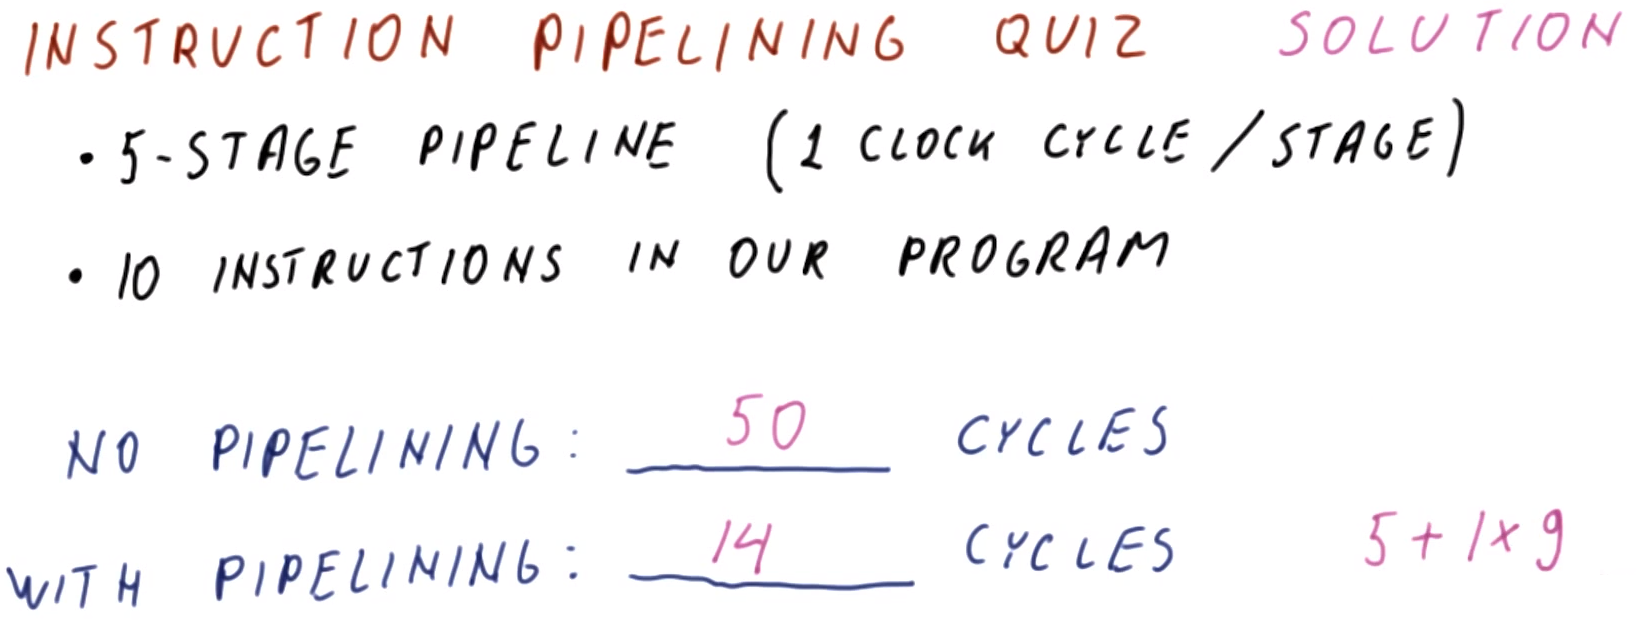 INSTRUCTION PIPELINING QUIZ SOLUTION
• 5-STAGE PIPELINE (1 CLOCK CYCLE / STAGE)
• 10 INSTRUCTIONS IN OUR PROGRAM
NO PIPELINING: 50 CYCLES
WITH PIPELINING: 14 CYCLES 5 + 1 × 9